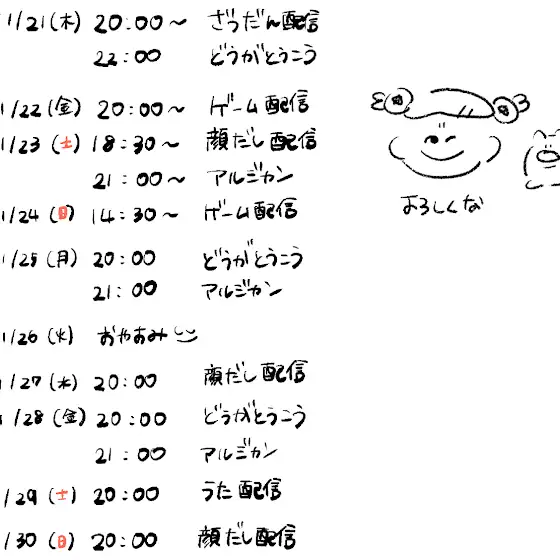 1/21(木) 20:00〜 ざつだん配信
22:00 どうがとうこう
1/22(金) 20:00〜 ゲーム配信
1/23(土) 18:30〜 顔だし配信
21:00〜 アルジャン
1/24(日) 14:30〜 ゲーム配信
1/25(月) 20:00 どうがとうこう
21:00 アルジャン
1/26(火) おやすみ
1/27(水) 20:00 顔だし配信
1/28(金) 20:00 どうがとうこう
21:00 アルジャン
1/29(土) 20:00 うた配信
1/30(日) 20:00 顔だし配信
よろしくな